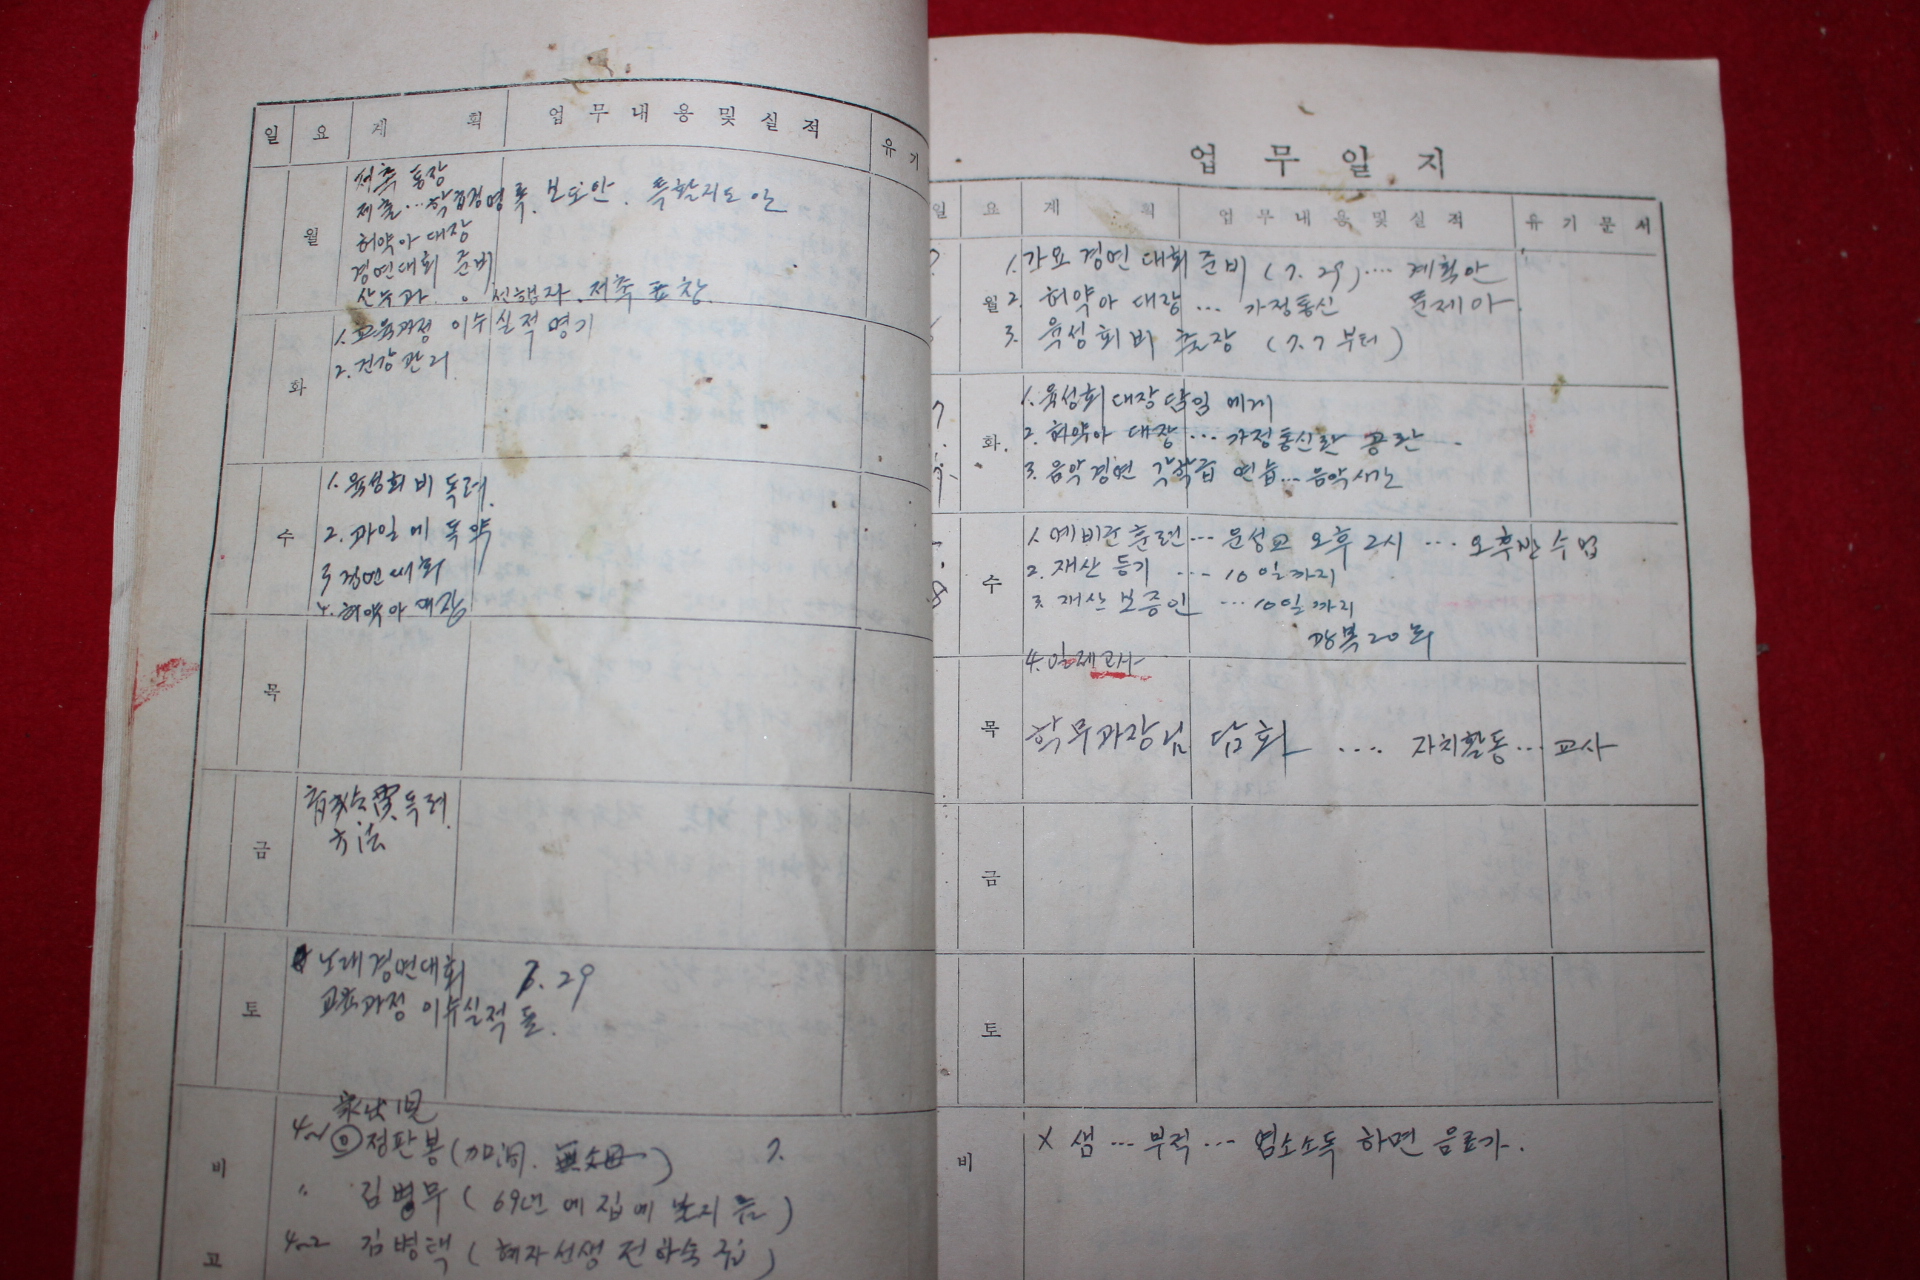 일 요 계 획 업 무 내 용 및 실 적 유 기
월
저축 통장
제출… 학급경영록. 보도안. 특활지도안
허약아 대장
경연대회 준비
산수과. 선행자. 저축 표창.
화
1. 교육과정 이수실적 명기
2. 건강관리
수
1. 육성회비 독려.
2. 과일에 독약
3 경연대회
4. 허약아 대장
목
금
育成会費 독려.
方法
토
노래경연대회 7. 29
교육과정 이수실적 들.
비
고
4~1 정판봉(加
〃 김병무 ( 69년에 집에
4~2 김병택 ( 혜자선생 전 하숙집)
업 무 일 지
일 요 계 획 업 무 내 용 및 실 적 유 기 문 서
월
1. 가요경연 대회 준비 (7. 29) …. 계획안
2. 허약아 대장 … 가정통신 문제아.
3. 육성회비 출장 (7. 7 부터)
화
1. 육성회 대장 담임에게
2. 허약아 대장 … 가정통신란 공란.
3. 음악경연 각학급 연습… 음악시간
수
1. 예비군 훈련 … 문성교 오후 2시 … 오후반 수업
2. 재산 등기 … 10일까지
3. 재산 보증인 … 10일까지
광복 20
4. 일제고사
목
학무과장님 담화 …. 자치활동 … 교사
금
토
비
X 샘 … 부적 … 염소소독 하면 음료가.